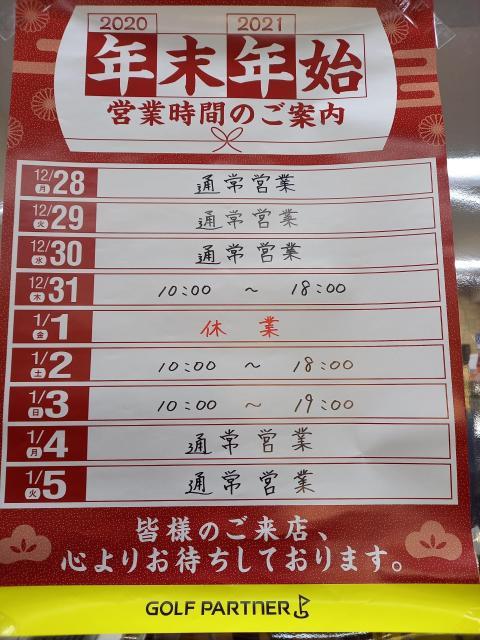 2020 2021
年末年始
営業時間のご案内
12/28 月 通常営業
12/29 火 通常営業
12/30 水 通常営業
12/31 木 10:00 ～ 18:00
1/1 金 休業
1/2 土 10:00 ～ 18:00
1/3 日 10:00 ～ 19:00
1/4 月 通常営業
1/5 火 通常営業
皆様のご来店、
心よりお待ちしております。
GOLF PARTNER